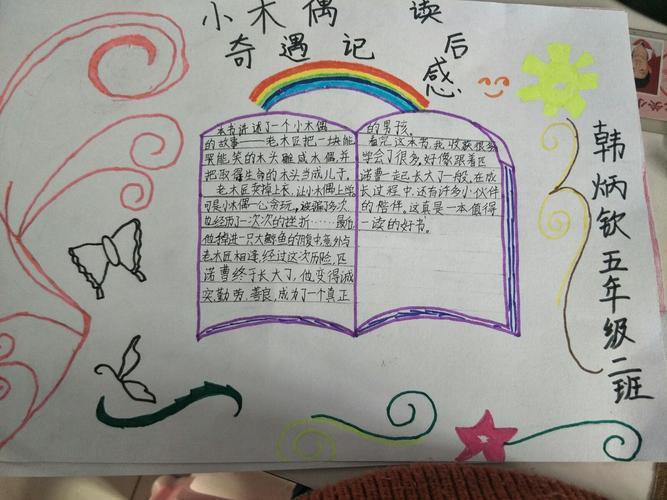 小木偶 读
奇遇记 后
感
本书讲述了一个小木偶
的故事——老木匠把一块能
哭能笑的木头雕成木偶,并
把取得生命的木头当成儿子。
老木匠卖掉上衣,让小木偶上学
可是小木偶一心贪玩。被骗多次
也经历了一次次的挫折……最后
他掉进一只大鲸鱼的腹中,意外与
老木匠相逢,经过这次历险,匹
诺曹终于长大了,他变得诚
实、勤劳、善良,成为了一个真正
的男孩。
看完这本书,我收获很多
学会了很多,好像跟着匹
诺曹一起长大了一般,在成
长过程中,还有许多小伙伴
的陪伴。这真是一本值得
一读的好书。
韩炳钦五年级二班